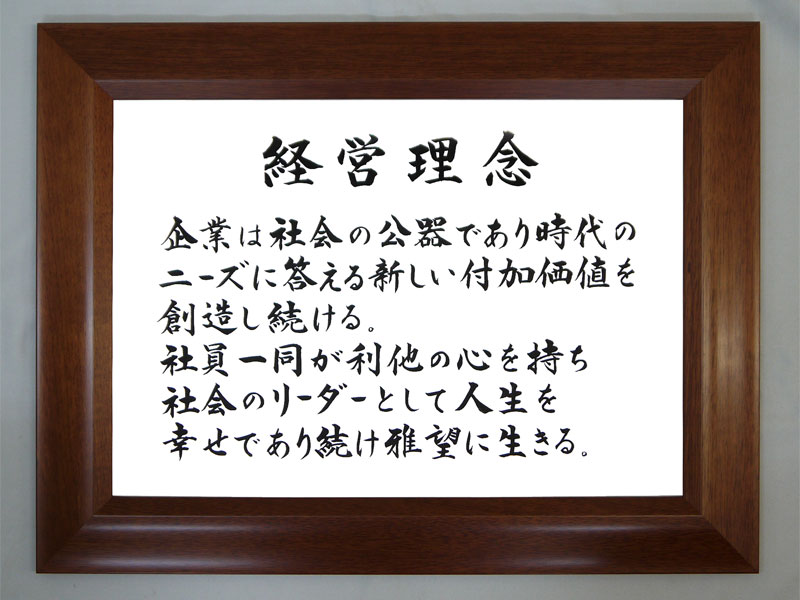 経営理念
企業は社会の公器であり時代の
ニーズに答える新しい付加価値を
創造し続ける。
社員一同が利他の心を持ち
社会のリーダーとして人生を
幸せであり続け雅望に生きる。